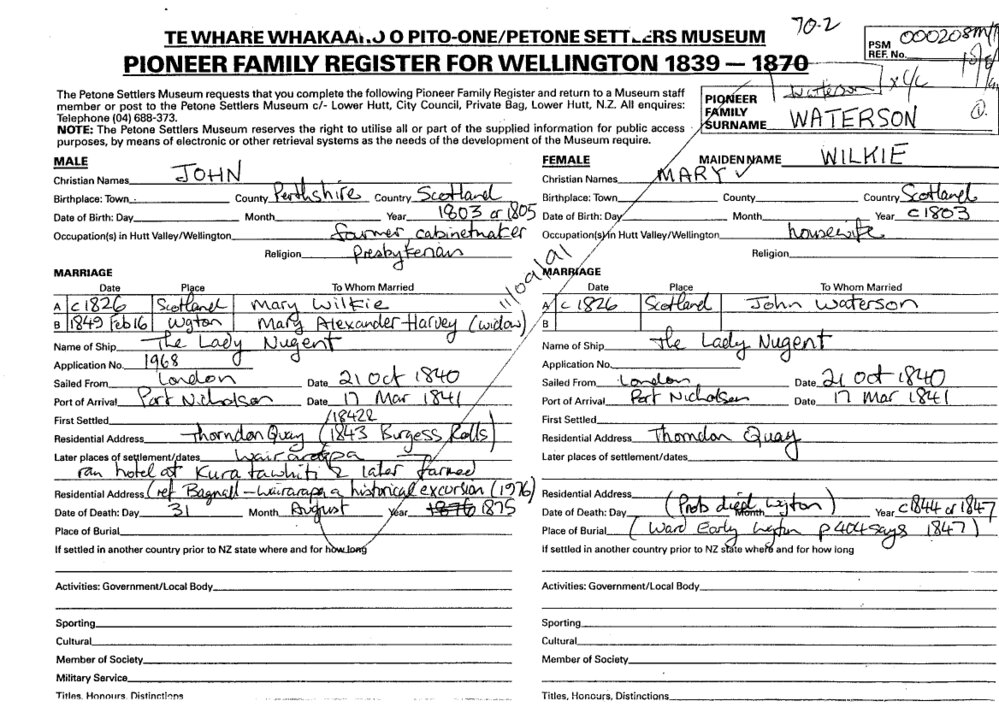 70-2
TE WHARE WHAKAA O PITO-ONE/PETONE SETTLERS MUSEUM
PSM REF. No. 000208M/
PIONEER FAMILY REGISTER FOR WELLINGTON 1839 — 1870
The Petone Settlers Museum requests that you complete the following Pioneer Family Register and return to a Museum staff
member or post to the Petone Settlers Museum c/- Lower Hutt, City Council, Private Bag, Lower Hutt, N.Z. All enquires:
Telephone (04) 688-373.
NOTE: The Petone Settlers Museum reserves the right to utilise all or part of the supplied information for public access
purposes, by means of electronic or other retrieval systems as the needs of the development of the Museum require.
Waterson
PIONEER FAMILY SURNAME WATERSON
MALE
Christian Names JOHN
Birthplace: Town County Perthshire Country Scotland
Date of Birth: Day Month Year 1803 or 1805
Occupation(s) in Hutt Valley/Wellington farmer cabinetmaker
Religion Presbyterian
MARRIAGE
Date Place To Whom Married
A c 1826 Scotland Mary Wilkie
B 1849 Feb 16 Wgton Mary Alexander Harvey (widow)
Name of Ship The Lady Nugent
Application No. 1968
Sailed From London Date 21 Oct 1840
Port of Arrival Port Nicholson Date 17 Mar 1841
First Settled /1842&
Residential Address Thorndon Quay (1843 Burgess Rolls)
Later places of settlement/dates Wairarapa
ran hotel at Kuratawhiti & later farmed
Residential Address (ref Bagnall - Wairarapa a historical excursion (1976)
Date of Death: Day 31 Month August Year 1876 1875
Place of Burial
If settled in another country prior to NZ state where and for how long
Activities: Government/Local Body
Sporting
Cultural
Member of Society
Military Service
Titles, Honours, Distinctions
11/09/91
FEMALE MAIDEN NAME WILKIE
Christian Names MARY ✓
Birthplace: Town County Country Scotland
Date of Birth: Day Month Year c 1803
Occupation(s) in Hutt Valley/Wellington housewife
Religion
MARRIAGE
Date Place To Whom Married
A c 1826 Scotland John Waterson
B
Name of Ship The Lady Nugent
Application No.
Sailed From London Date 21 Oct 1840
Port of Arrival Port Nicholson Date 17 Mar 1841
First Settled
Residential Address Thorndon Quay
Later places of settlement/dates
Residential Address
Date of Death: Day (Prob died Wgton) Month Year c 1844 or 1847
Place of Burial (Ward Early Wgton p 404 says 1847)
If settled in another country prior to NZ state where and for how long
Activities: Government/Local Body
Sporting
Cultural
Member of Society
Titles, Honours, Distinctions